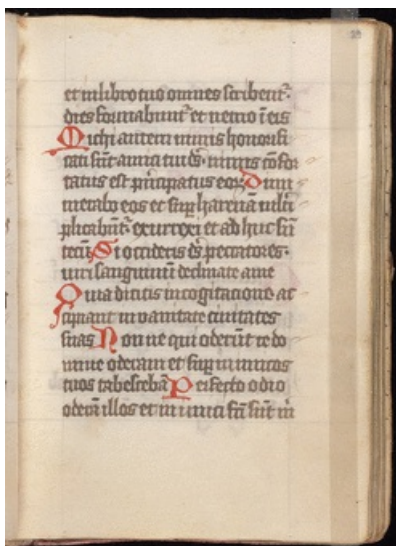 et in libro tuo omnes scribent᷑.
dies formabunt᷑ et nemo ī eis
Michi autem nimis honorifi
cati sūt amici tui d̄s. nimis cōfor
tatus est p̄ncipatus eorꝫ Dinu
merabo eos et sup̄ harenā m̄lti
plicabūt᷑ exurrexi et ad huc sū
tecū Si occideris d̄s peccatores.
viri sanguinū declinate a me
Quia dicitis in cogitacione ac
cipiant in vanitate ciuitates
suas Non ne qui oderūt te do
mine oderam et sup̄ inimicos
tuos tabescebā Perfecto odio
oderā illos et inimici fc̄i sūt m̄